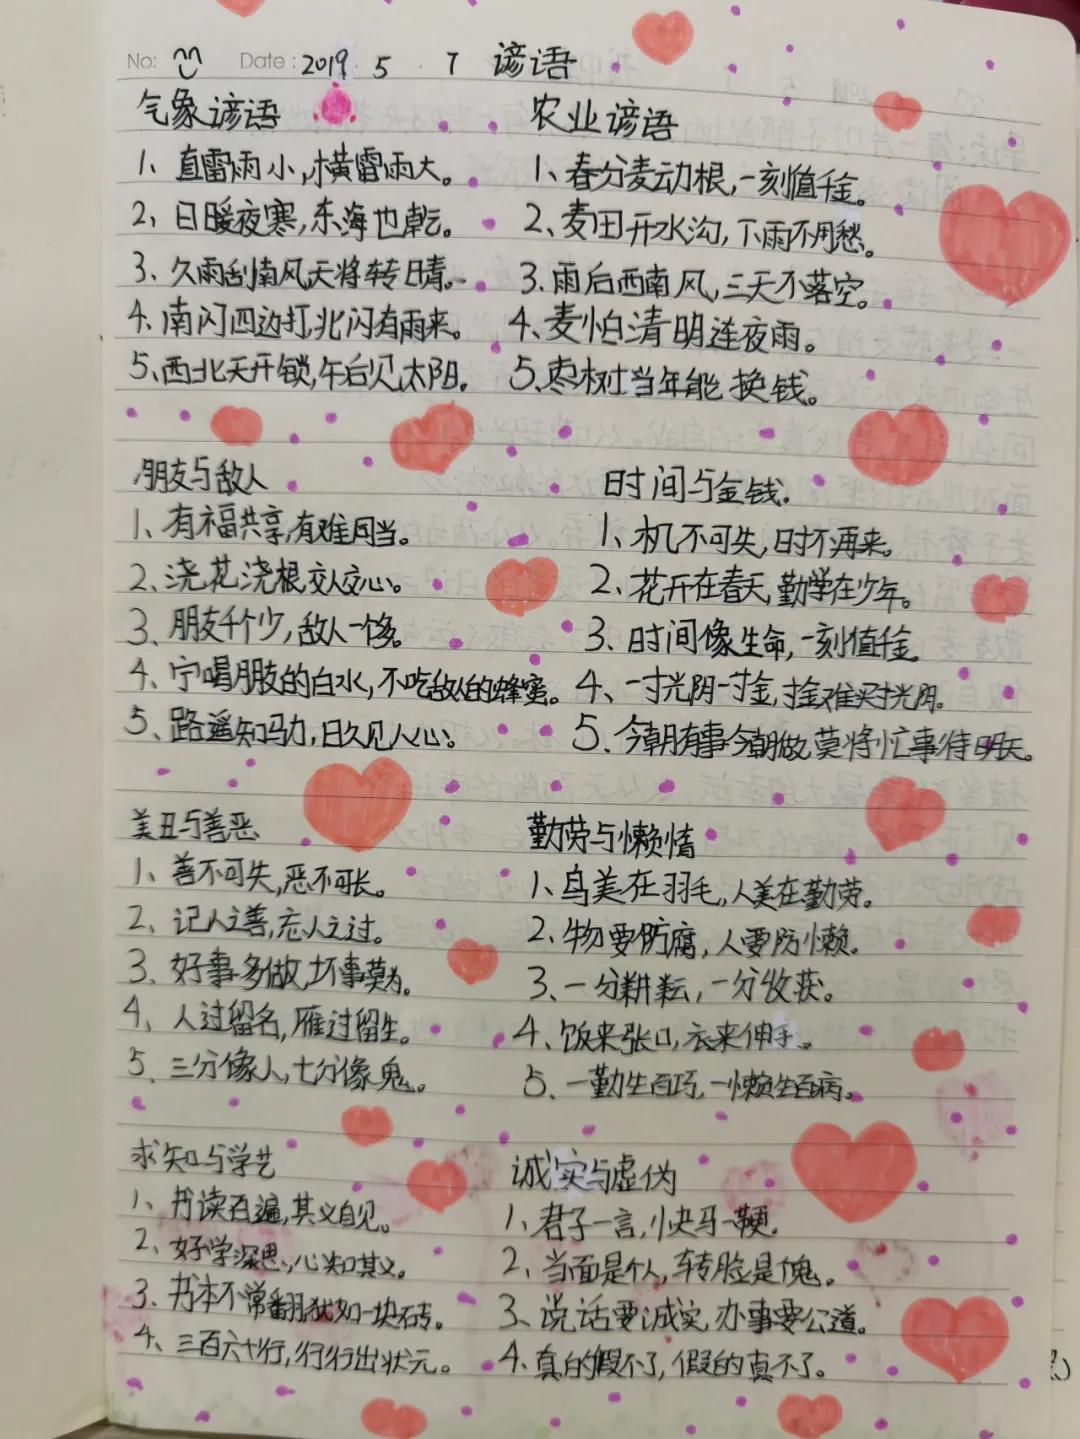 No: Date: 2019.5.7 谚语
气象谚语
1、直雷雨小,横雷雨大。
2、日暖夜寒,东海也乾。
3、久雨刮南风,天将转日晴。
4、南闪四边打,北闪有雨来。
5、西北天开锁,午后见太阳。
农业谚语
1、春分麦动根,一刻值千金。
2、麦田开水沟,下雨不用愁。
3、雨后西南风,三天不落空。
4、麦怕清明连夜雨。
5、枣树当年能换钱。
朋友与敌人
1、有福共享,有难同当。
2、浇花浇根,交人交心。
3、朋友千个少,敌人一个多。
4、宁喝朋友的白水,不吃敌人的蜂蜜。
5、路遥知马力,日久见人心。
时间与金钱.
1、机不可失,时不再来。
2、花开在春天,勤学在少年。
3、时间像生命,一刻值千金。
4、一寸光阴一寸金,寸金难买寸光阴。
5、今朝有事今朝做,莫将忙事待明天。
美丑与善恶
1、善不可失,恶不可长。
2、记人之善,忘人之过。
3、好事多做,坏事莫为。
4、人过留名,雁过留生。
5、三分像人,七分像鬼。
勤劳与懒惰
1、鸟美在羽毛,人美在勤劳。
2、物要防腐,人要防懒。
3、一分耕耘,一分收获。
4、饭来张口,衣来伸手。
5、一勤生百巧,一懒生百病。
求知与学艺
1、书读百遍,其义自见。
2、好学深思,心知其义。
3、书本不常翻,犹如一块砖。
4、三百六十行,行行出状元。
诚实与虚伪
1、君子一言,快马一鞭。
2、当面是个人,转脸是个鬼。
3、说话要诚实,办事要公道。
4、真的假不了,假的真不了。